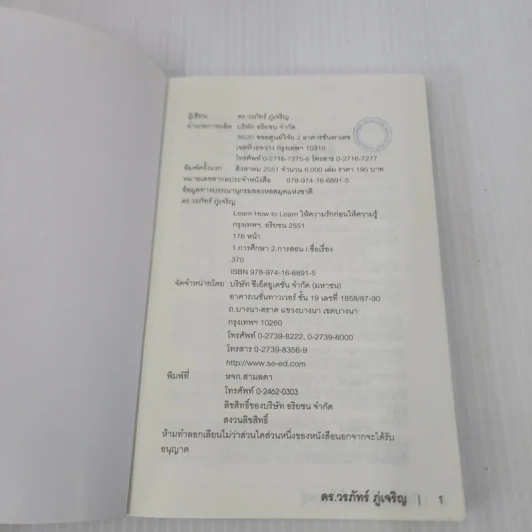 ผู้เขียน ดร.วรภัทร์ ภู่เจริญ
อำนวยการผลิต บริษัท อริยชน จำกัด
36/20 ซอยศูนย์วิจัย 2 อาคารชันพาเดช
เขตห้วยขวาง กรุงเทพฯ 10310
โทรศัพท์ 0-2716-7275-6 โทรสาร 0-2716-7277
พิมพ์ครั้งแรก สิงหาคม 2551 จำนวน 6,000 เล่ม ราคา 195 บาท
หมายเลขสากลประจำหนังสือ 978-974-16-6891-5
ข้อมูลทางบรรณานุกรมของหอสมุดแห่งชาติ
ดร.วรภัทร์ ภู่เจริญ
Learn How to Learn ให้ความรักก่อนให้ความรู้
กรุงเทพฯ. อริยชน 2551
176 หน้า
1.การศึกษา 2.การสอน I.ชื่อเรื่อง
370
ISBN 978-974-16-6891-5
จัดจำหน่ายโดย บริษัท ซีเอ็ดยูเคชั่น จำกัด (มหาชน)
อาคารเนชั่นทาวเวอร์ ชั้น 19 เลขที่ 1858/87-90
ถ.บางนา-ตราด แขวงบางนา เขตบางนา
กรุงเทพฯ 10260
โทรศัพท์ 0-2739-8222, 0-2739-8000
โทรสาร 0-2739-8356-9
http://www.se-ed.com
พิมพ์ที่ หจก.สามลดา
โทรศัพท์ 0-2462-0303
ลิขสิทธิ์ของบริษัท อริยชน จำกัด
สงวนลิขสิทธิ์
ห้ามทำลอกเลียนไม่ว่าส่วนใดส่วนหนึ่งของหนังสือนอกจากจะได้รับ
อนุญาต
ดร.วรภัทร์ ภู่เจริญ | 1